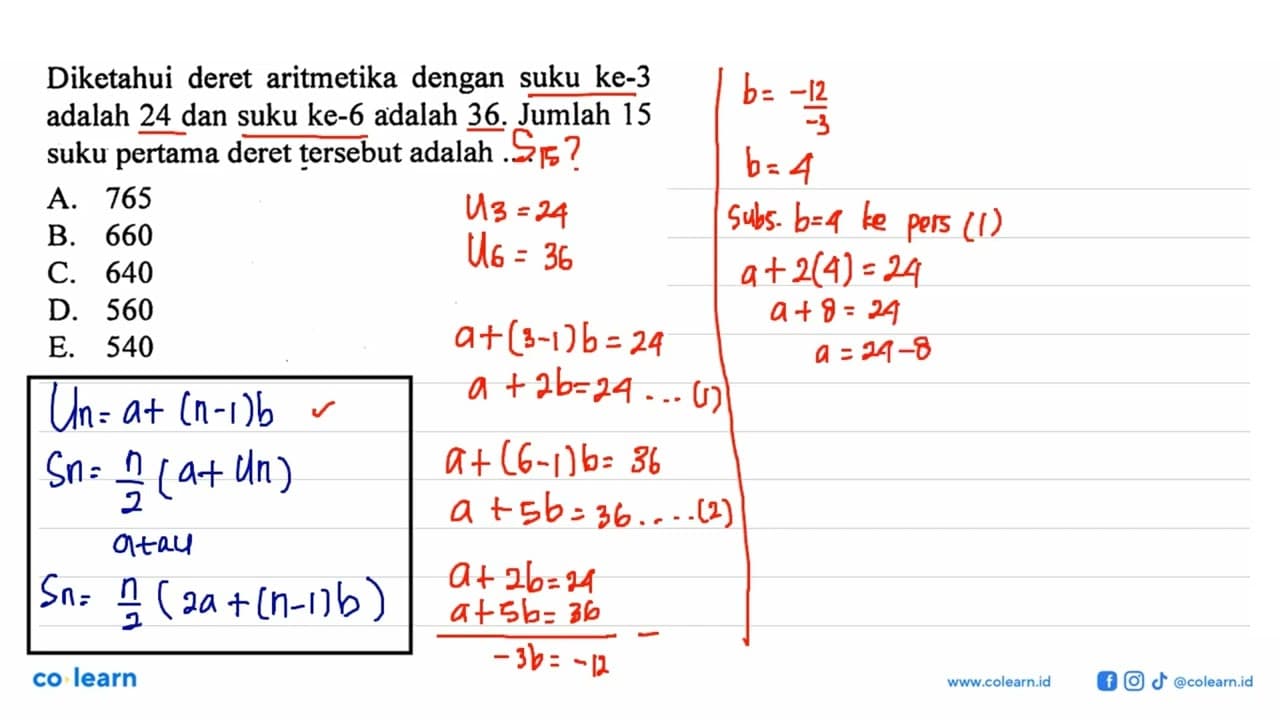 Diketahui deret aritmetika dengan suku ke-3
adalah 24 dan suku ke-6 adalah 36. Jumlah 15
suku pertama deret tersebut adalah .... S15?
A. 765
B. 660
C. 640
D. 560
E. 540
Un = a + (n-1)b ✓
Sn = n/2 (a + Un)
atau
Sn = n/2 (2a + (n-1)b)
U3 = 24
U6 = 36
a + (3-1)b = 24
a + 2b = 24 .... (1)
a + (6-1)b = 36
a + 5b = 36 .... (2)
a + 2b = 24
a + 5b = 36 -
-3b = -12
b = -12/-3
b = 4
Subs. b=4 ke pers (1)
a + 2(4) = 24
a + 8 = 24
a = 24 - 8
co learn
www.colearn.id
@colearn.id